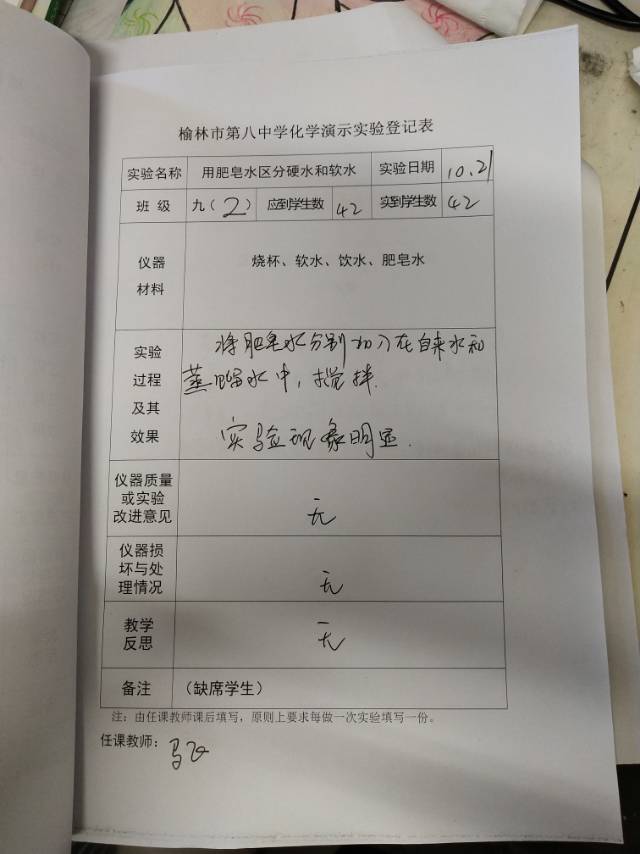 榆林市第八中学化学演示实验登记表
实验名称 用肥皂水区分硬水和软水 实验日期 10.21
班 级 九（2） 应到学生数 42 实到学生数 42
仪器
材料
烧杯、软水、饮水、肥皂水
实验
过程
及其
效果
将肥皂水分别加入在自来水和
蒸馏水中，搅拌.
实验现象明显.
仪器质量
或实验
改进意见
无
仪器损
坏与处
理情况
无
教学
反思
无
备注 （缺席学生）
注：由任课教师课后填写，原则上要求每做一次实验填写一份。
任课教师：马